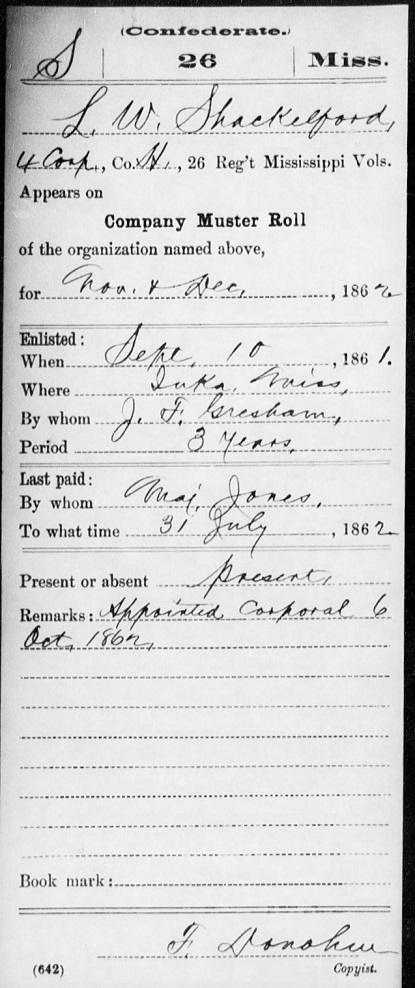 (Confederate.)
S | 26 | Miss.
L. W. Shackelford,
4 Corp, Co. H, 26 Reg't Mississippi Vols.
Appears on
Company Muster Roll
of the organization named above,
for Nov. & Dec, , 1862
Enlisted:
When Sept. 10 , 1861.
Where Iuka, Miss,
By whom J. F. Gresham,
Period 3 years,
Last paid:
By whom Maj. Jones,
To what time 31 July , 1862
Present or absent Present,
Remarks: Appointed Corporal 6
Oct, 1862,
Book mark:
F. Donohue
(642) Copyist.